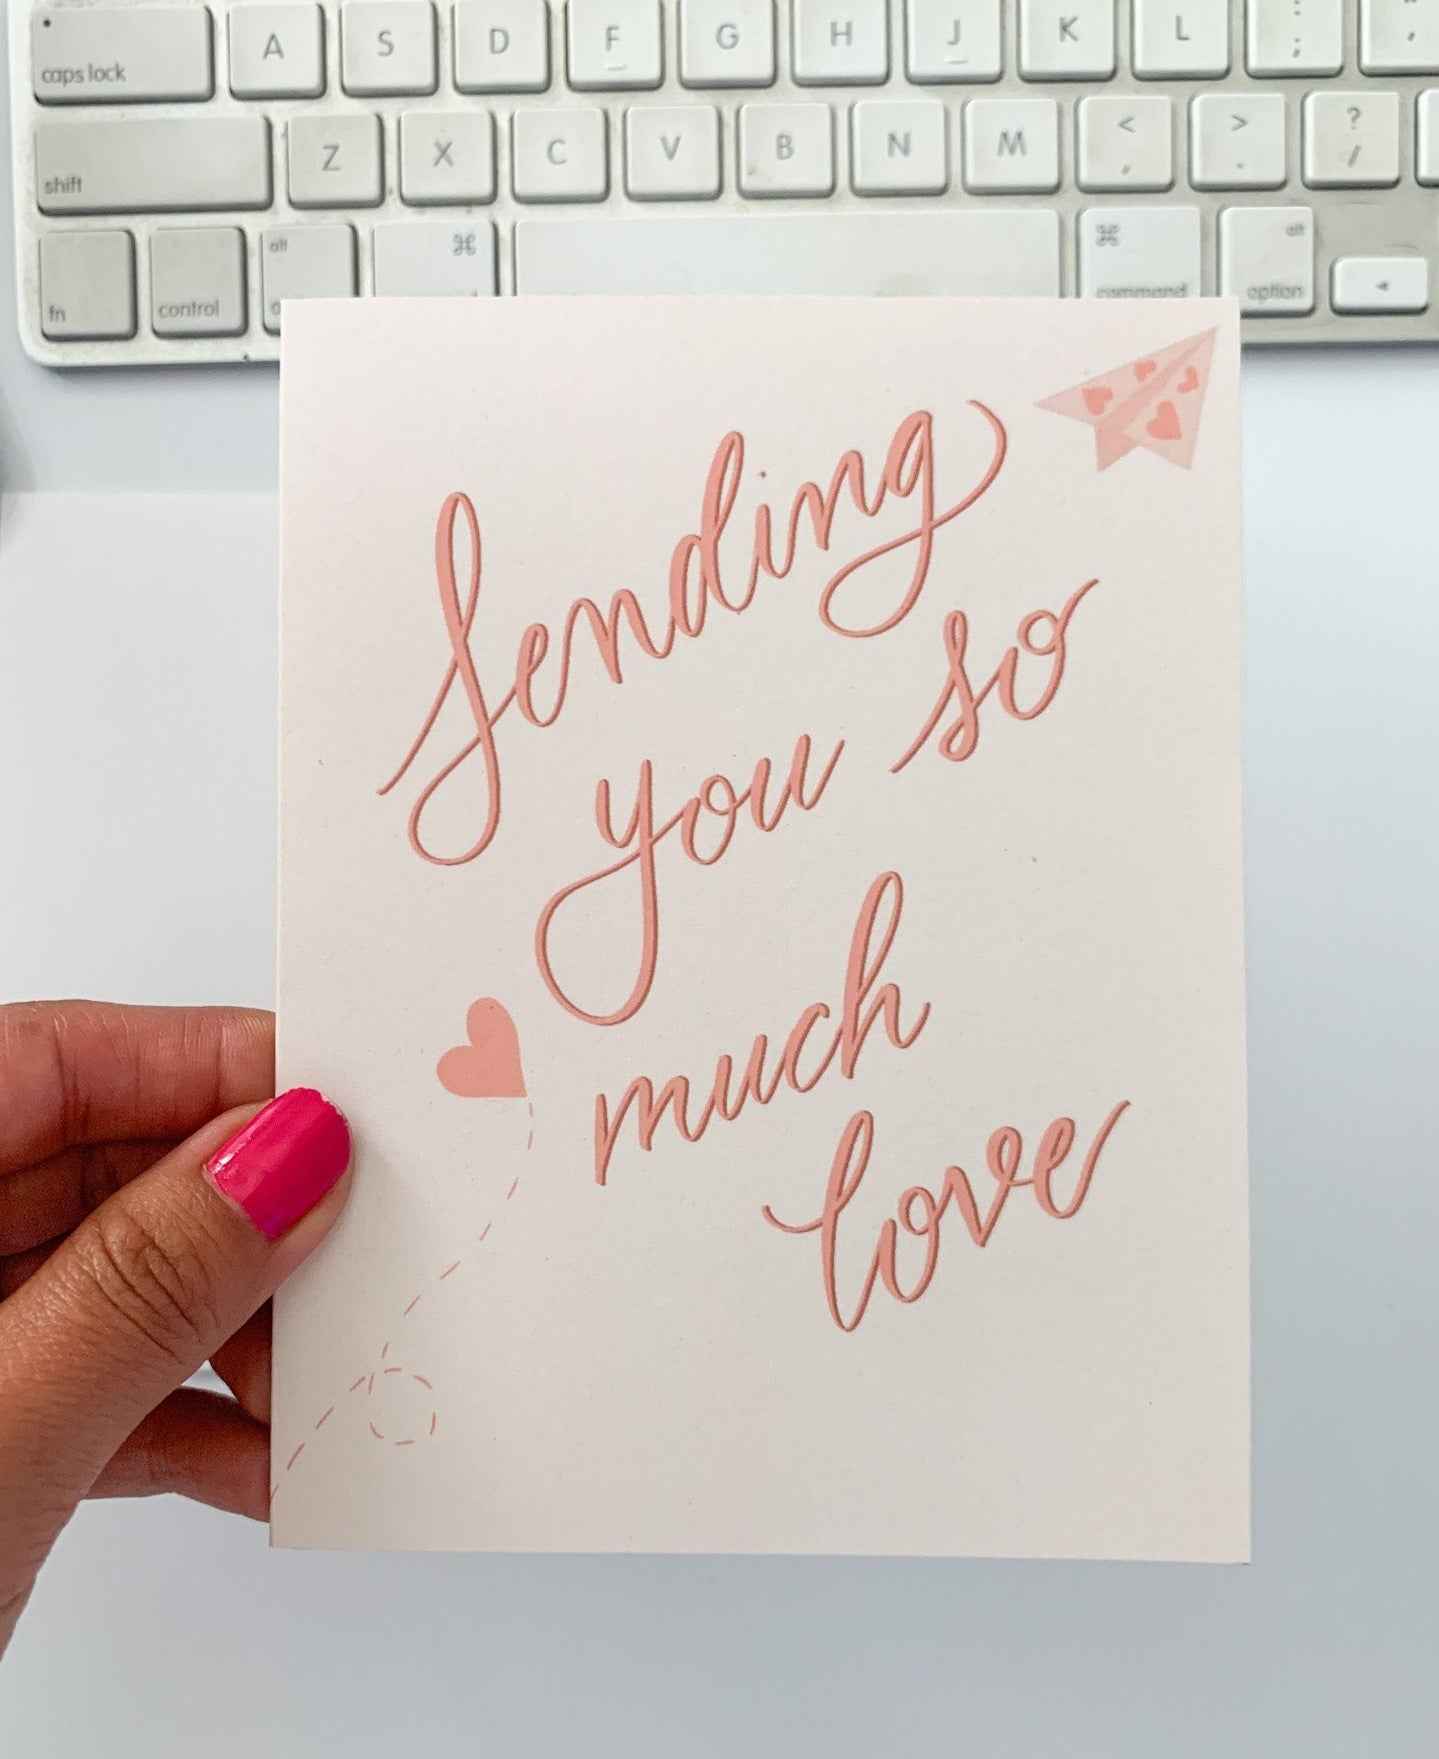 caps lock A S D F G H J K L : ;
shift Z X C V B N M < , > . ? /
alt ⌘ ⌘ alt
fn control command option ◄
Sending
you so
much
love